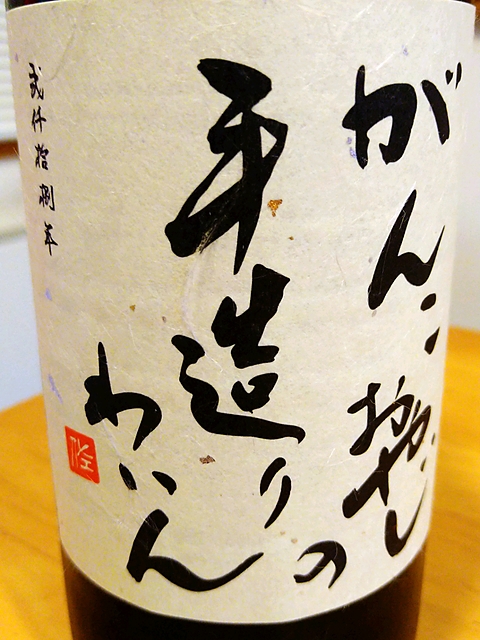 がんこおやじの
手造り
わいん
弐仟拾捌年
佐